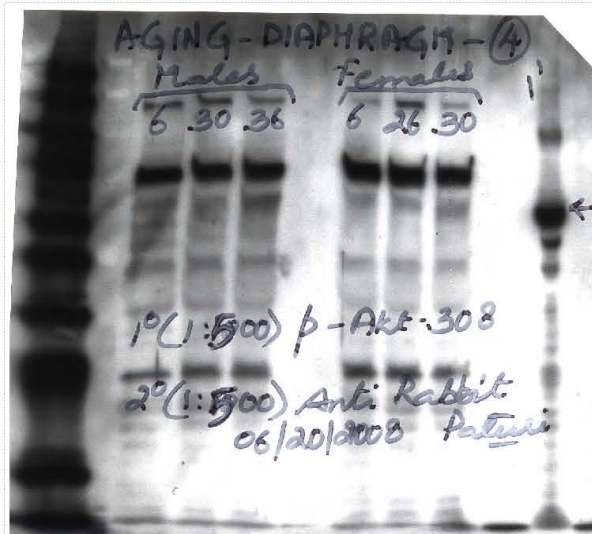 AGING-DIAPHRAGM-4
Males Females
6 30 36 6 26 30
1° (1:500) p-Akt-308
2° (1:500) Anti Rabbit
06/20/2008 Paturi